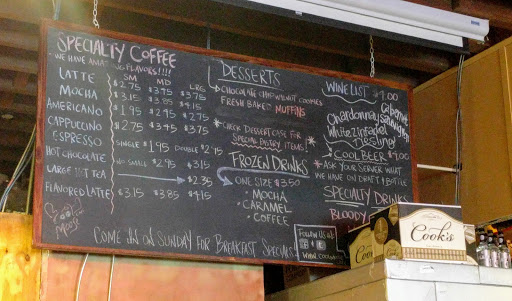 SPECIALTY COFFEE
WE HAVE AMAZING FLAVORS!!!!
SM MD LRG
LATTE $2.75 $3.45 $3.75
MOCHA $3.15 $3.85 $4.15
AMERICANO $1.95 $2.45 $2.75
CAPPUCCINO $2.75 $3.45 $3.75
ESPRESSO SINGLE $1.95 DOUBLE $2.75
HOT CHOCOLATE NO SMALL $2.95 $3.15
LARGE HOT TEA $2.35
FLAVORED LATTE $3.15 $3.85 $4.15
MOOSE
DESSERTS
CHOCOLATE CHIP WALNUT COOKIES
FRESH BAKED MUFFINS
*CHECK DESSERT CASE FOR
SPECIAL PASTRY ITEMS*
FROZEN DRINKS
ONE SIZE $3.50
MOCHA
CARAMEL
COFFEE
COME IN ON SUNDAY FOR BREAKFAST SPECIALS
WINE LIST $7.00
Chardonnay
Cabernet
Sauvignon
White Zinfadel
Riesling
COOL BEER $4.00
*ASK YOUR SERVER WHAT
WE HAVE ON DRAFT & BOTTLE
SPECIALTY DRINKS
BLOODY
FOLLOW US at:
Cook's
Cook's